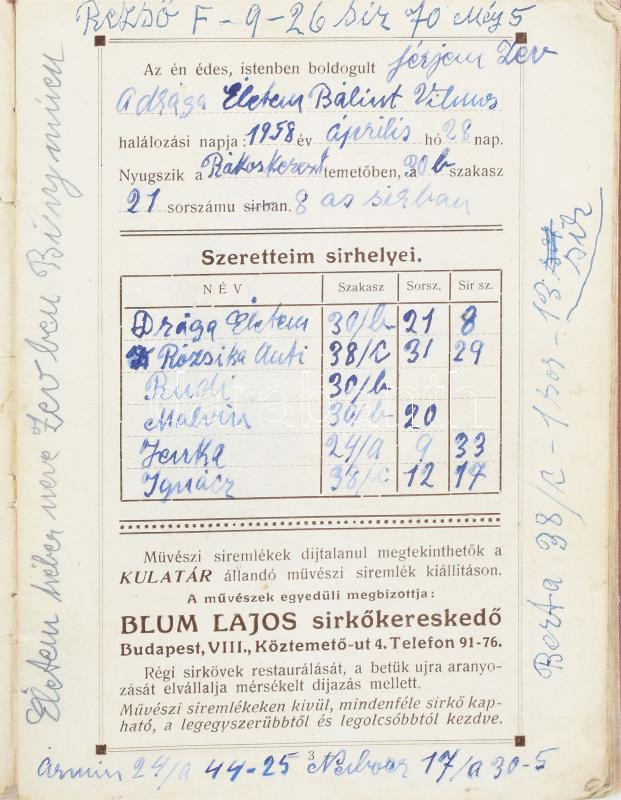 Rezső F-9-26 sir 70 Máj 5
Az én édes, istenben boldogult férjem Zev
a drága Életem Bálint Vilmos
halálozási napja: 1958 év április hó 28 nap.
Nyugszik a Rákoskereszt temetőben, a 30b szakasz
21 sorszámu sirban. 8 as sirban
Szeretteim sirhelyei.
NÉV Szakasz Sorsz. Sir sz.
Drága Életem 30/b 21 8
Rózsika Anti 38/c 31 29
Rudi 30/b
Malvin 30/b 20
Jenke 24/a 9 33
Ignácz 38/c 12 17
Müvészi siremlékek dijtalanul megtekinthetők a
KULATÁR állandó müvészi siremlék kiállitáson.
A müvészek egyedüli megbizottja:
BLUM LAJOS sirkőkereskedő
Budapest, VIII., Köztemető-ut 4. Telefon 91-76.
Régi sirkövek restaurálását, a betük ujra aranyo-
zását elvállalja mérsékelt dijazás mellett.
Müvészi siremlékeken kivül, mindenféle sirkő kap-
ható, a legegyszerübbtől és legolcsóbbtól kezdve.
3
Ármin 24/a 44-25 17/a 30-5
Életem héber neve Zev ben Binyминen
Berta 38/c - 1 sor - 13 sir